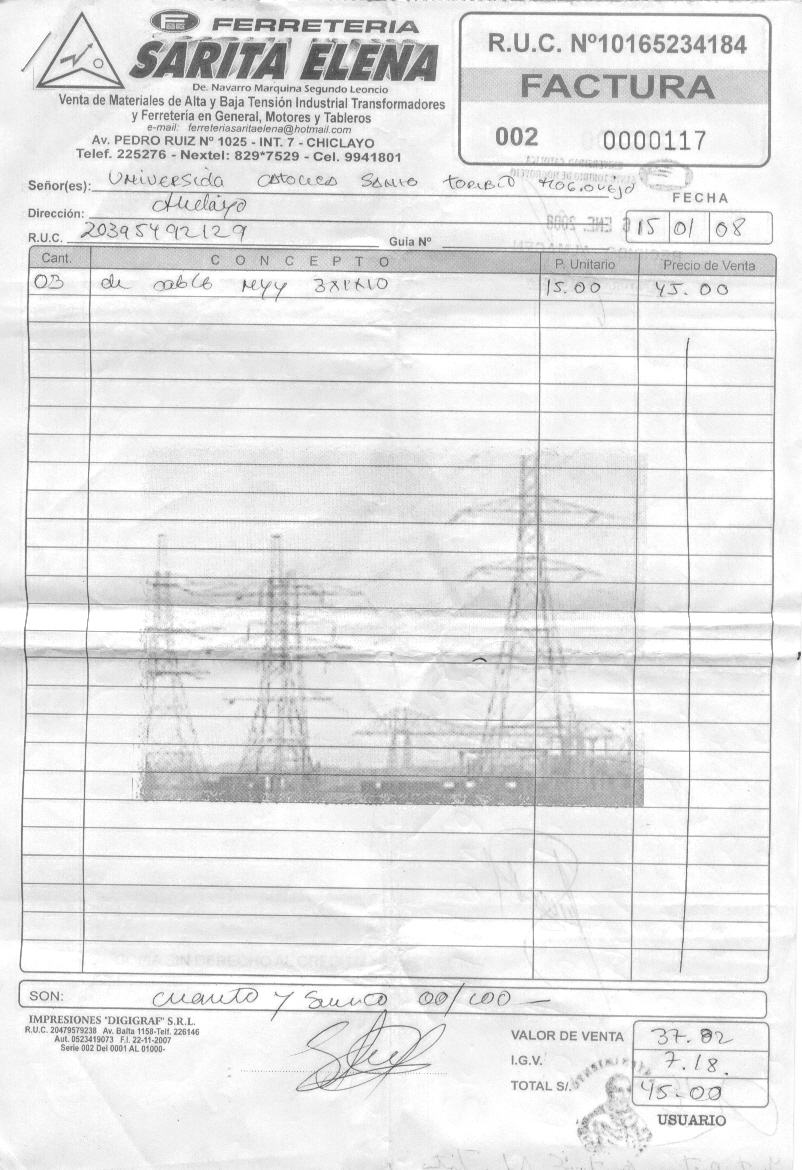 FERRETERIA
SARITA ELENA
De. Navarro Marquina Segundo Leoncio
Venta de Materiales de Alta y Baja Tensión Industrial Transformadores
y Ferretería en General, Motores y Tableros
e-mail: ferreteriasaritaelena@hotmail.com
Av. PEDRO RUIZ Nº 1025 - INT. 7 - CHICLAYO
Telef. 225276 - Nextel: 829*7529 - Cel. 9941801
R.U.C. Nº10165234184
FACTURA
002 0000117
Señor(es): Universida Catolica Santo Toribio Mogrovejo
Dirección: Chiclayo
R.U.C. 20395492129 Guia Nº
FECHA
15 01 08
Cant. CONCEPTO P. Unitario Precio de Venta
03 de cable nyy 3x1x10 15.00 45.00
SON: 00/100 —
IMPRESIONES "DIGIGRAF" S.R.L.
R.U.C. 20479579238 Av. Balta 1158-Telf. 226146
Aut. 0523419073 F.I. 22-11-2007
Serie 002 Del 0001 AL 01000-
VALOR DE VENTA 37.82
I.G.V. 7.18.
TOTAL S/. 45.00
USUARIO